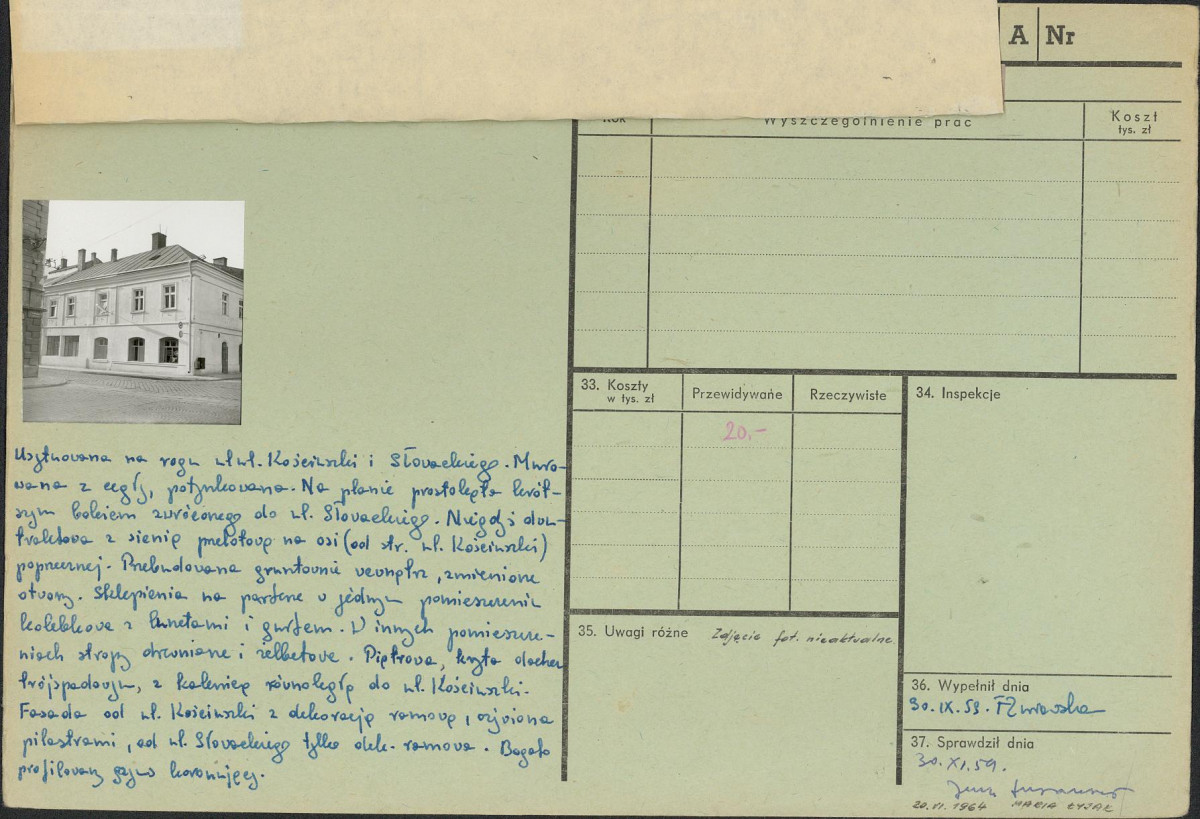 A Nr
Rok
Wyszczególnienie prac
Koszt
tys. zł
Usytuowana na rogu ul.ul. Kościuszki i Słowackiego. Muro-
wana z cegły, potynkowana. Na planie prostokąta krót-
szym bokiem zwróconego do ul. Słowackiego. Niegdyś dwu-
traktowa z sienią przelotową na osi (od str. ul. Kościuszki)
poprzecznej. Przebudowana gruntownie wewnątrz, zmienione
otwory. Sklepienia na parterze w jednym pomieszczeniu
kolebkowe z lunetami i gurtem. W innych pomieszcze-
niach stropy drewniane i żelbetowe. Piętrowa, kryta dachem
trójspadowym, z kalenicą równoległą do ul. Kościuszki.
Fasada od ul. Kościuszki z dekoracją ramową, ożywiona
pilastrami, od ul. Słowackiego tylko dek. ramowa. Bogato
profilowany gzyms koronujący.
33. Koszty
w tys. zł
Przewidywane
Rzeczywiste
20.-
34. Inspekcje
35. Uwagi różne
Zdjęcie fot. nieaktualne
36. Wypełnił dnia
30.IX.59.
37. Sprawdził dnia
30.XI.59.
20.VI.1964 MARIA ŁYJAK